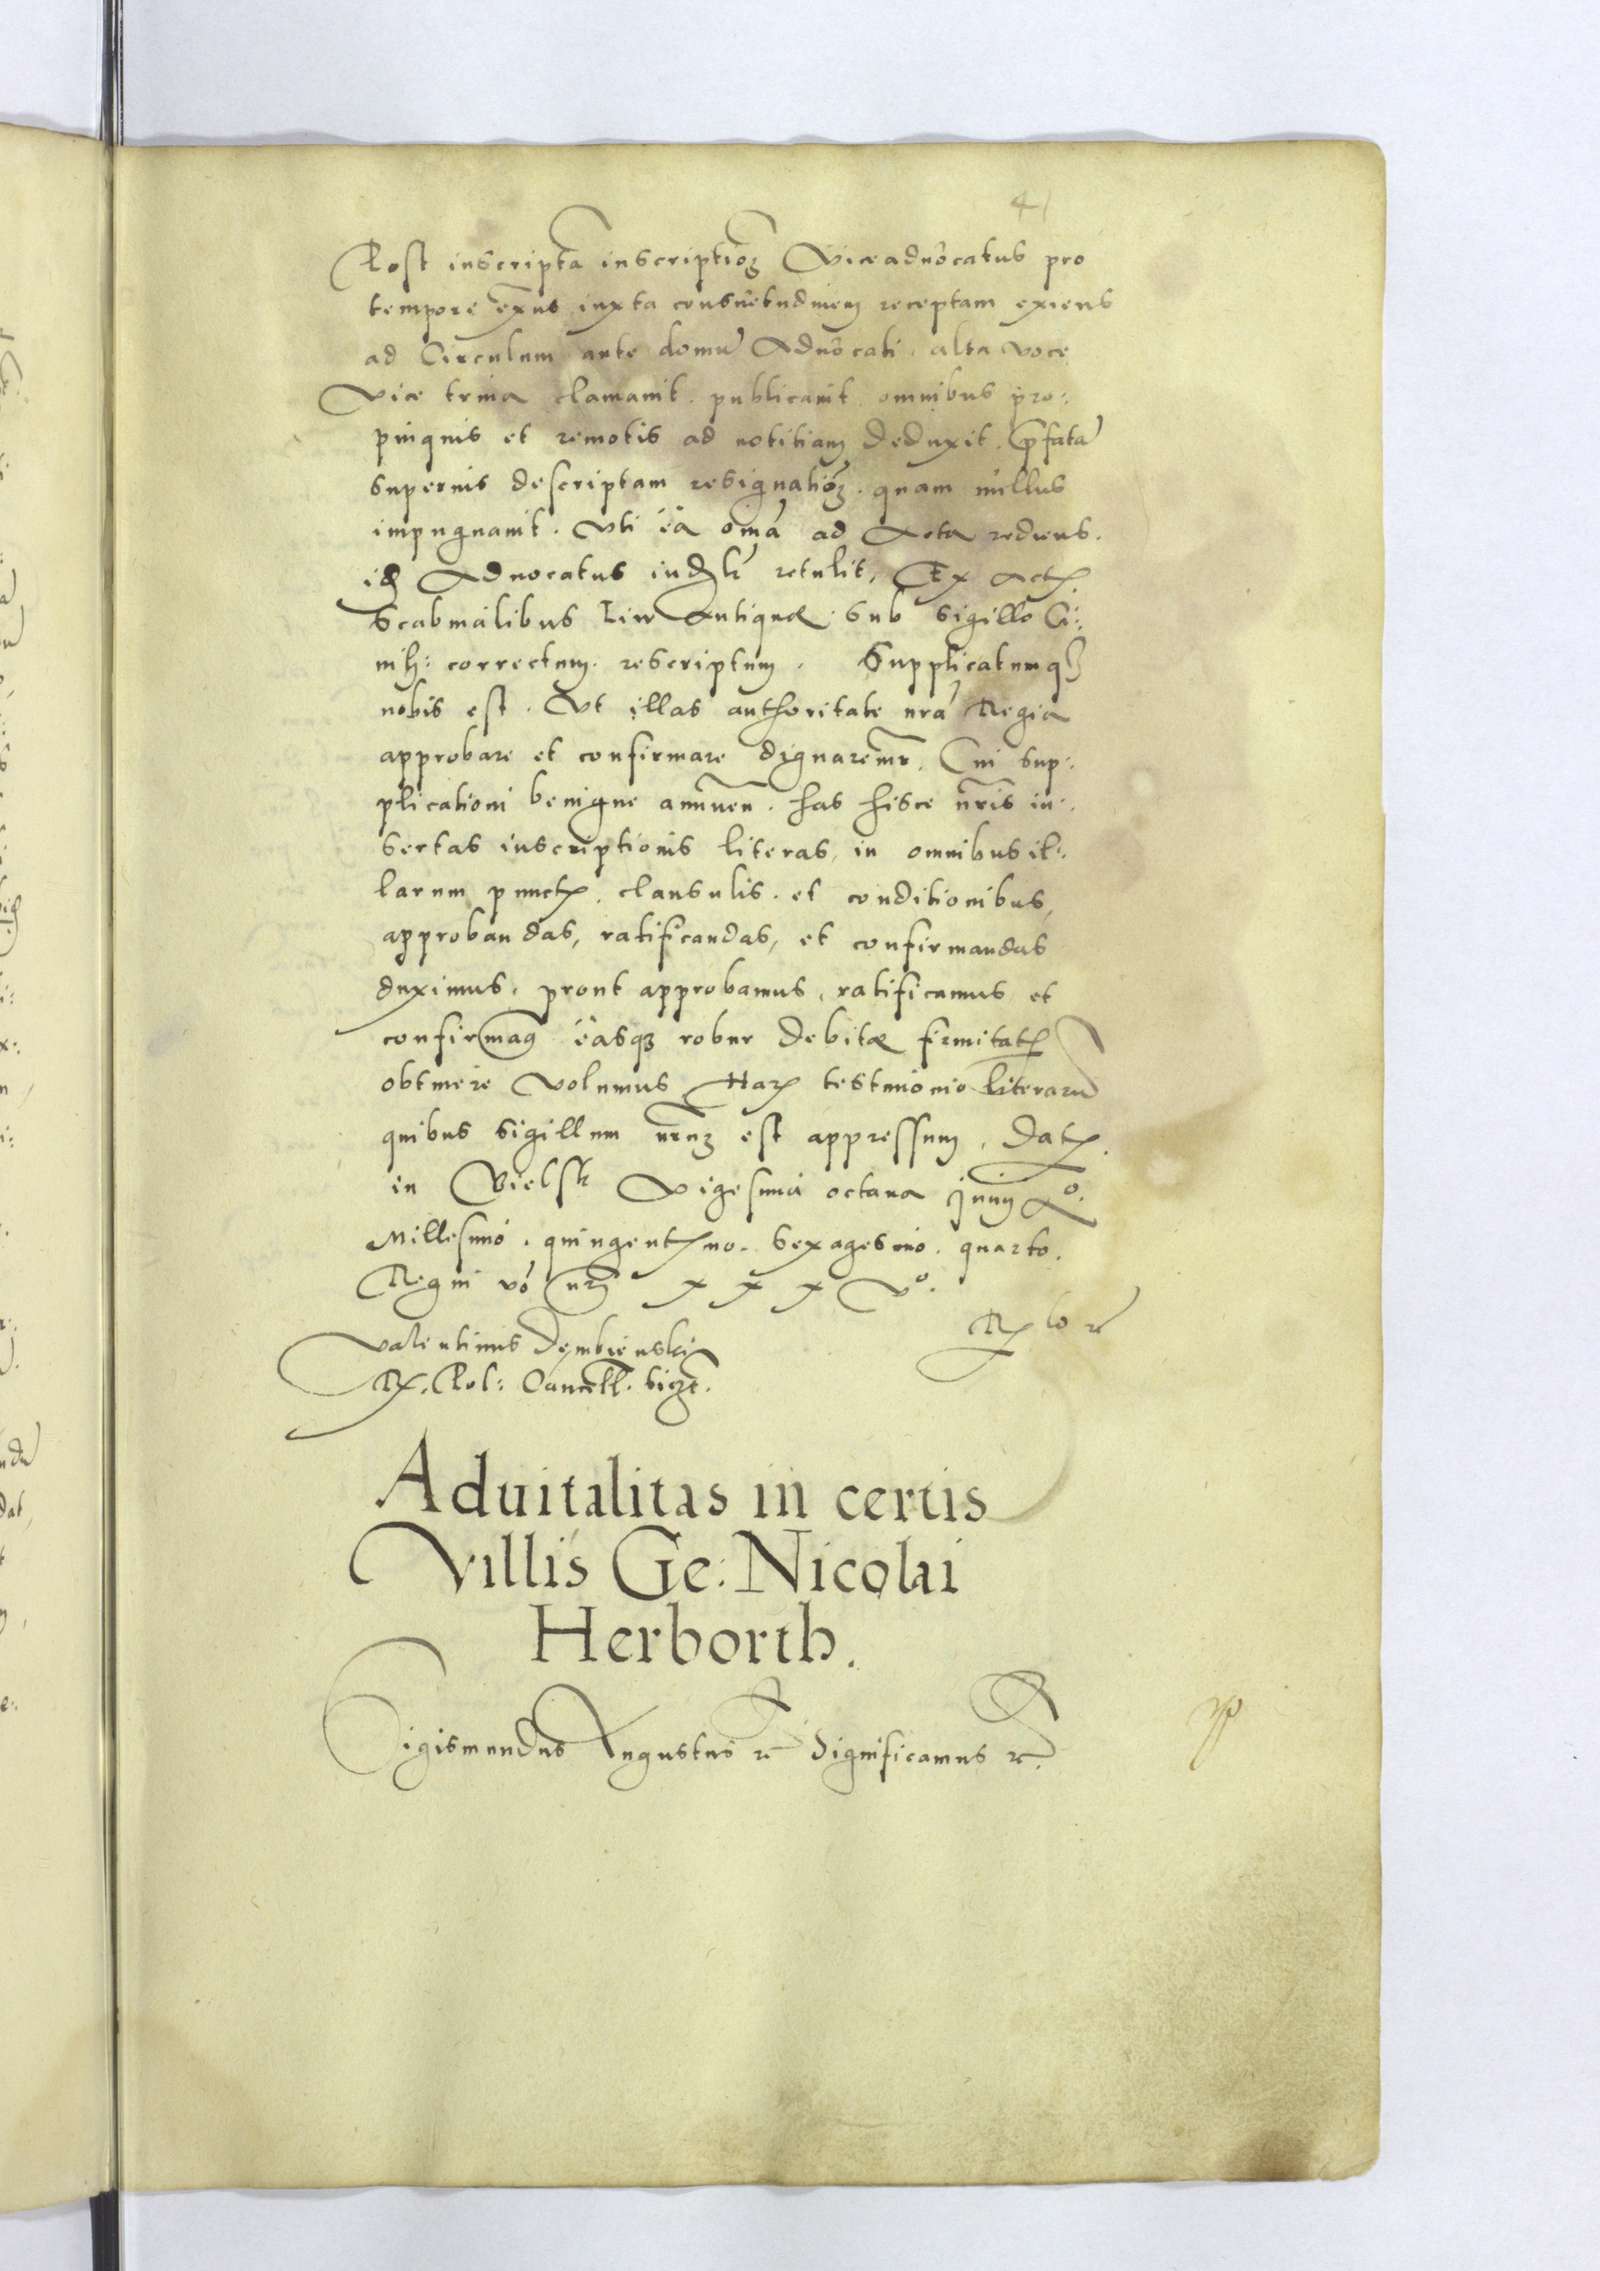 41
Post inscriptā inscriptioē Viceaduocatus pro
tempore exñs iuxta consuetudinem receptam exiens
ad Circulum ante domū Aduocati. alta voce
Vice trina clamauit. publicauit omnibus pro:
pinquis et remotis ad notitiam deduxit. p̄fatā
superius descriptam resignatioē. quam nullus
impugnauit. Vti ea om̄ia ad Acta rediens.
Aduocatus retulit, Ex Actis
Scabinalibus Antiquæ. Sub sigillo Ci:
correctum. rescriptum. Supplicatumq3
nobis est. Vt illas authoritate nrā Regia
approbare et confirmare dignaremr̄. Cui sup:
plicationi benigne annuen. has hisce nr̄is in:
sertas inscriptionis literas, in omnibus il:
larum punctis. clausulis. et conditionibus,
approbandas, ratificandas, et confirmandas
duximus. prout approbamus, ratificamus et
confirmamꝰ easq3 robur debitæ firmitatis
obtinere volumus Harū testimonio literarū
quibus sigillum nr̄um est appressum. Datꝭ.
in Bielsk Vigesima octaua Junij Aº.
Millesimo. quingentꝭmo. sexagesimo. quarto.
Regni vō nrī x x x Vº.
Valentinus Dembienski
R. Pol: Cancell. sszt.
Aduitalitas in certis
Villis Ge: Nicolai
Herborth.
Sigismundus Augustus rc̄ Significamus rc̄.